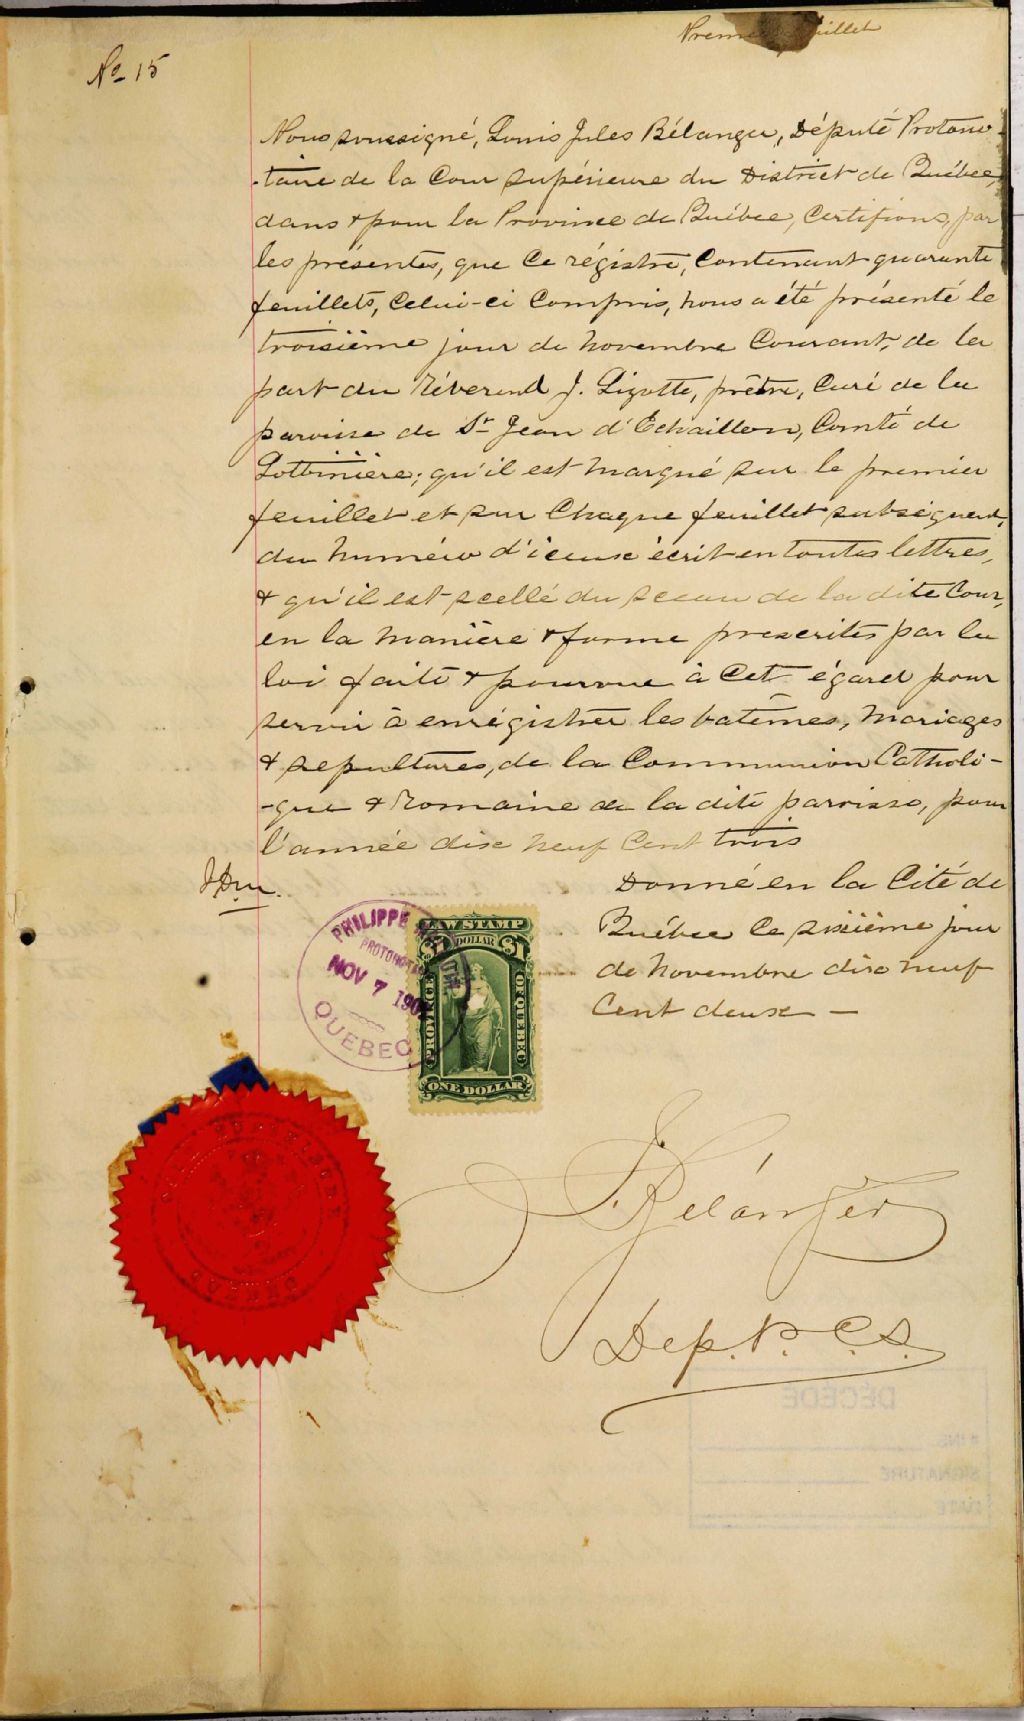 Premier feuillet
No 15
Nous soussigné, Louis Jules Bélanger, Député Protono-
-taire de la Cour supérieure du District de Québec,
dans & pour la Province de Québec, Certifions, par
les présentes, que Ce régistre, Contenant quarante
feuillets, Celui-ci Compris, nous a été présenté le
troisième jour de Novembre Courant, de la
part du Réverend J. Lizotte, prêtre, Curé de la
paroisse de St Jean d'Echaillon, Comté de
Lotbinière; qu'il est marqué sur le premier
feuillet et sur Chaque feuillet subséquent,
du Numéro d'iceux écrit en toutes lettres,
& qu'il est scellé du sceau de la dite Cour,
en la Manière & forme prescrites par la
loi faite & pourvue à Cet égard pour
servir à enrégistrer les batêmes, Mariages
& sepultures, de la Communion Catholi-
-que & Romaine de la dite paroisse, pour
l'année dix neuf Cent trois
Donné en la Cité de
Québec Ce sixième jour
de Novembre dix neuf
Cent deux —
PHILIPPE
NOV 7
QUEBEC
LAW STAMP
$1 DOLLAR $1
PROVINCE OF QUEBEC
ONE DOLLAR
Bélanger
Dep. P. C. S.
DÉCÉDÉ
# INS
SIGNATURE
DATE